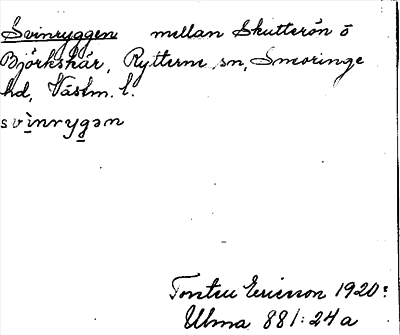 Svinryggen mellan Skutterön o
Björkskär, Rytterne sn, Snevringe
hd, Västm. l.
svinrygən
Ericson 1920:
Ulma 881:24a